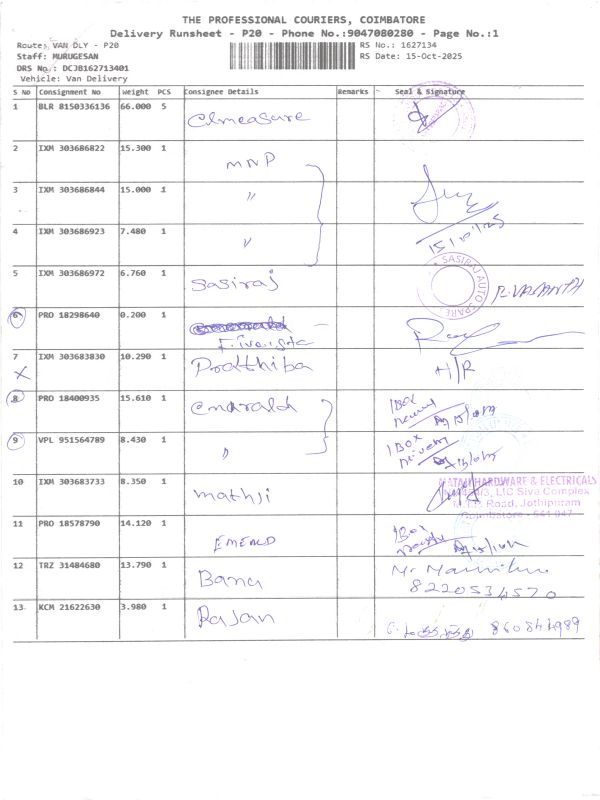 THE PROFESSIONAL COURIERS, COIMBATORE
Delivery Runsheet - P20 - Phone No.:9047080280 - Page No.:1
Route: VAN DLY - P20
RS No.: 1627134
Staff: MURUGESAN
RS Date: 15-Oct-2025
DRS No.: DCJB162713401
Vehicle: Van Delivery
S No Consignment No Weight PCS Consignee Details Remarks Seal & Signature
1 BLR 8150336136 66.000 5 Clmeasure
2 IXM 303686822 15.300 1 MNP
3 IXM 303686844 15.000 1 "
4 IXM 303686923 7.480 1 "
5 IXM 303686972 6.760 1 Sasiraj
SASIRAJ AUTO SPARE
6 PRO 18298640 0.200 1
7 IXM 303683830 10.290 1 Prathiba H/R
X
8 PRO 18400935 15.610 1 Emarald 1 Box
9 VPL 951564789 8.430 1 " 1 Box
10 IXM 303683733 8.350 1 Mathji
MATAJI HARDWARE & ELECTRICALS
LIC Siva Complex
Road, Jothipuram
Coimbatore - 641 047
11 PRO 18578790 14.120 1 EMERALD 1 Box
12 TRZ 31484680 13.790 1 Banu
8220534570
13 KCM 21622630 3.980 1 Rajan